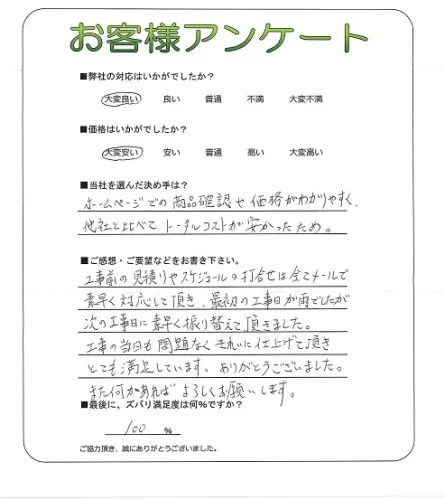 お客様アンケート
■弊社の対応はいかがでしたか？
大変良い 良い 普通 不満 大変不満
■価格はいかがでしたか？
大変安い 安い 普通 高い 大変高い
■当社を選んだ決め手は？
ホームページでの商品確認や価格がわかりやすく、
他社と比べてトータルコストが安かったため。
■ご感想・ご要望などをお書き下さい。
工事前の見積りやスケジュールの打合せは全てメールで
素早く対応して頂き、最初の工事日が雨でしたが
次の工事日に素早く振り替えて頂きました。
工事の当日も問題なくきれいに仕上げて頂き
とても満足しています。ありがとうございました。
また何かあればよろしくお願いします。
■最後に、ズバリ満足度は何％ですか？
100 %
ご協力頂き、誠にありがとうございました。